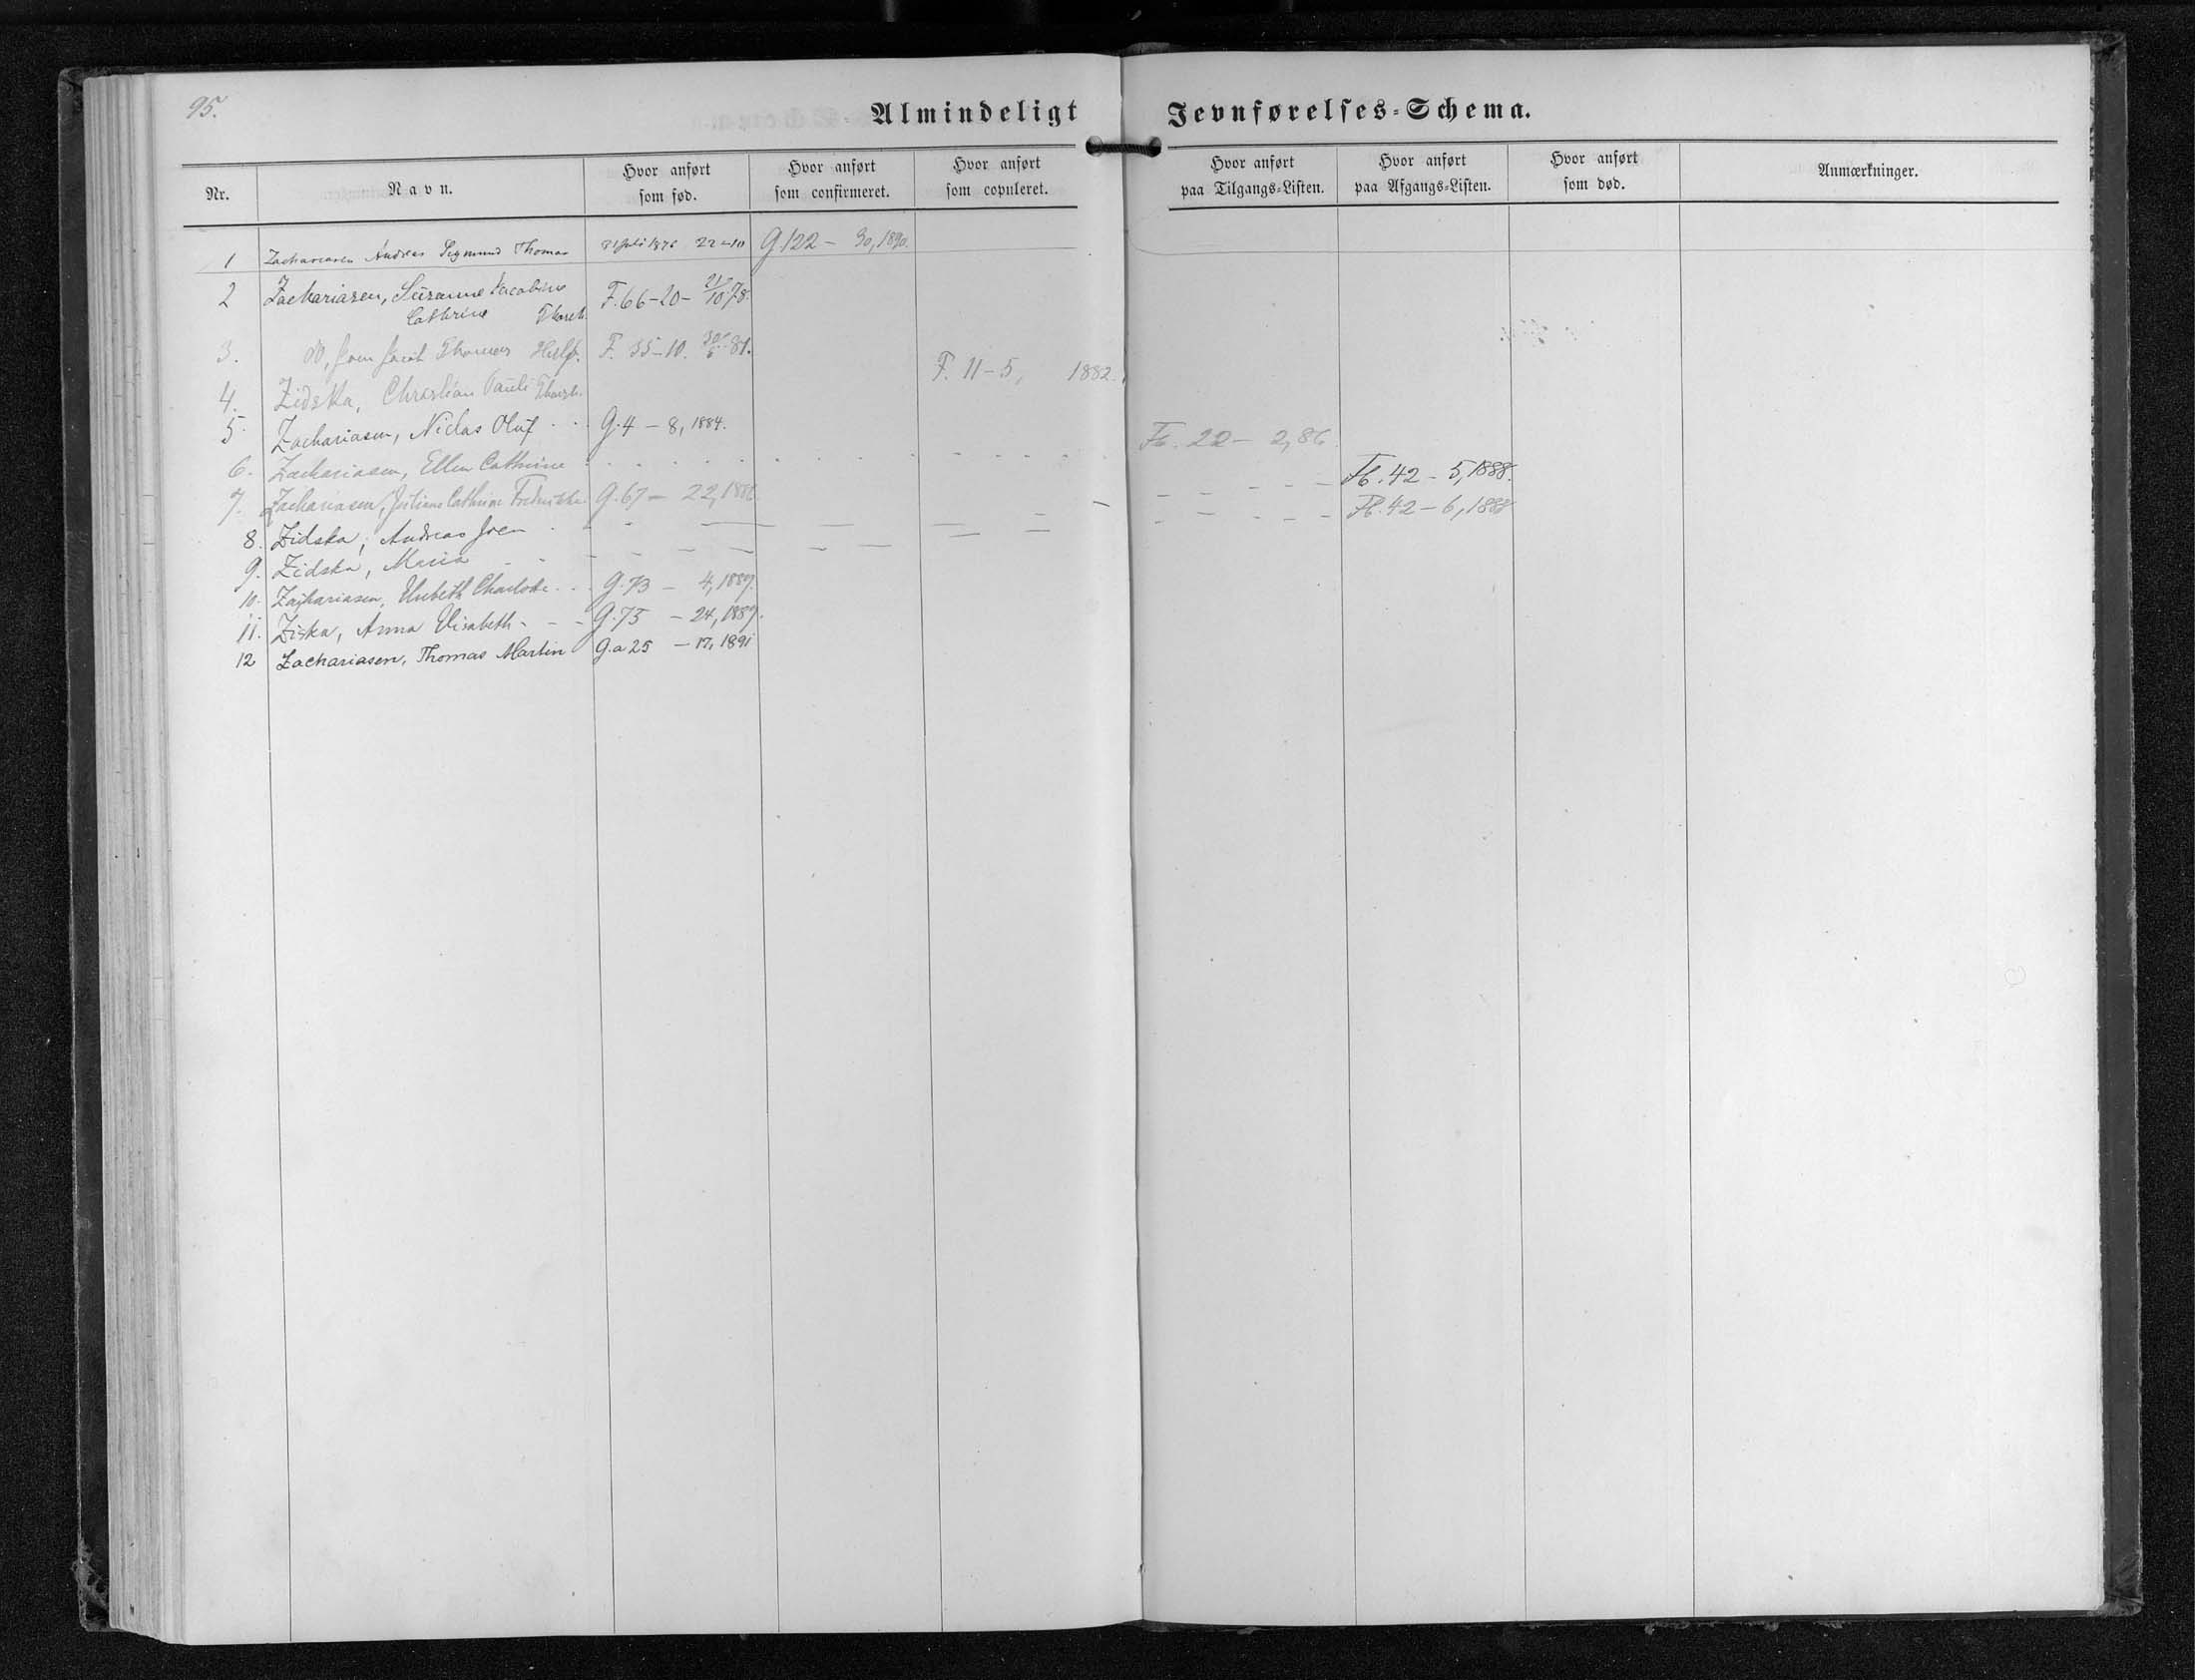 95.
Almindeligt Jevnførelses-Schema.
Nr. Navn. Hvor anført som fød. Hvor anført som confirmeret. Hvor anført som copuleret. Hvor anført paa Tilgangs-Listen. Hvor anført paa Afgangs-Listen. Hvor anført som død. Anmærkninger.
1 Zachariasen Andreas Sigmund Thomas 22-10 G 122 - 30, 1890.
2 Zachariasen, Susanne Jacobine F. 66-20- 21/10 78.
Cathrine
3. Do, Joen Jacob Thomas F. 55-10. 81.
4. Zidska, Christian Pauli F. 11-5, 1882.
5. Zachariasen, Niclas Oluf . . G. 4 - 8, 1884.
6. Zachariasen, Ellen Cathrine Fb. 22- 2, 86
7. Zachariasen, Juliane Cathrine Fredrikke G. 67 - 22, 1886.
8. Zidska, Andreas Joen Fb. 42 - 5, 1888.
9. Zidska, Maria Fb. 42 - 6, 1888
10. Zachariasen, Elisbeth Charlotte . . G. 73 - 4, 1887.
11. Ziska, Anna Elisabeth - - - G. 75 - 24, 1887.
12 Zachariasen, Thomas Martin G.a 25 - 17, 1891